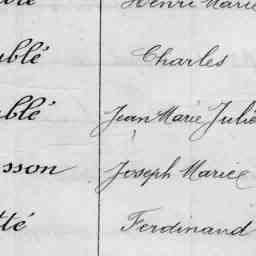 Henri Marie
ublé Charles
ublé Jean Marie Julie
sson Joseph Marie
tté Ferdinand